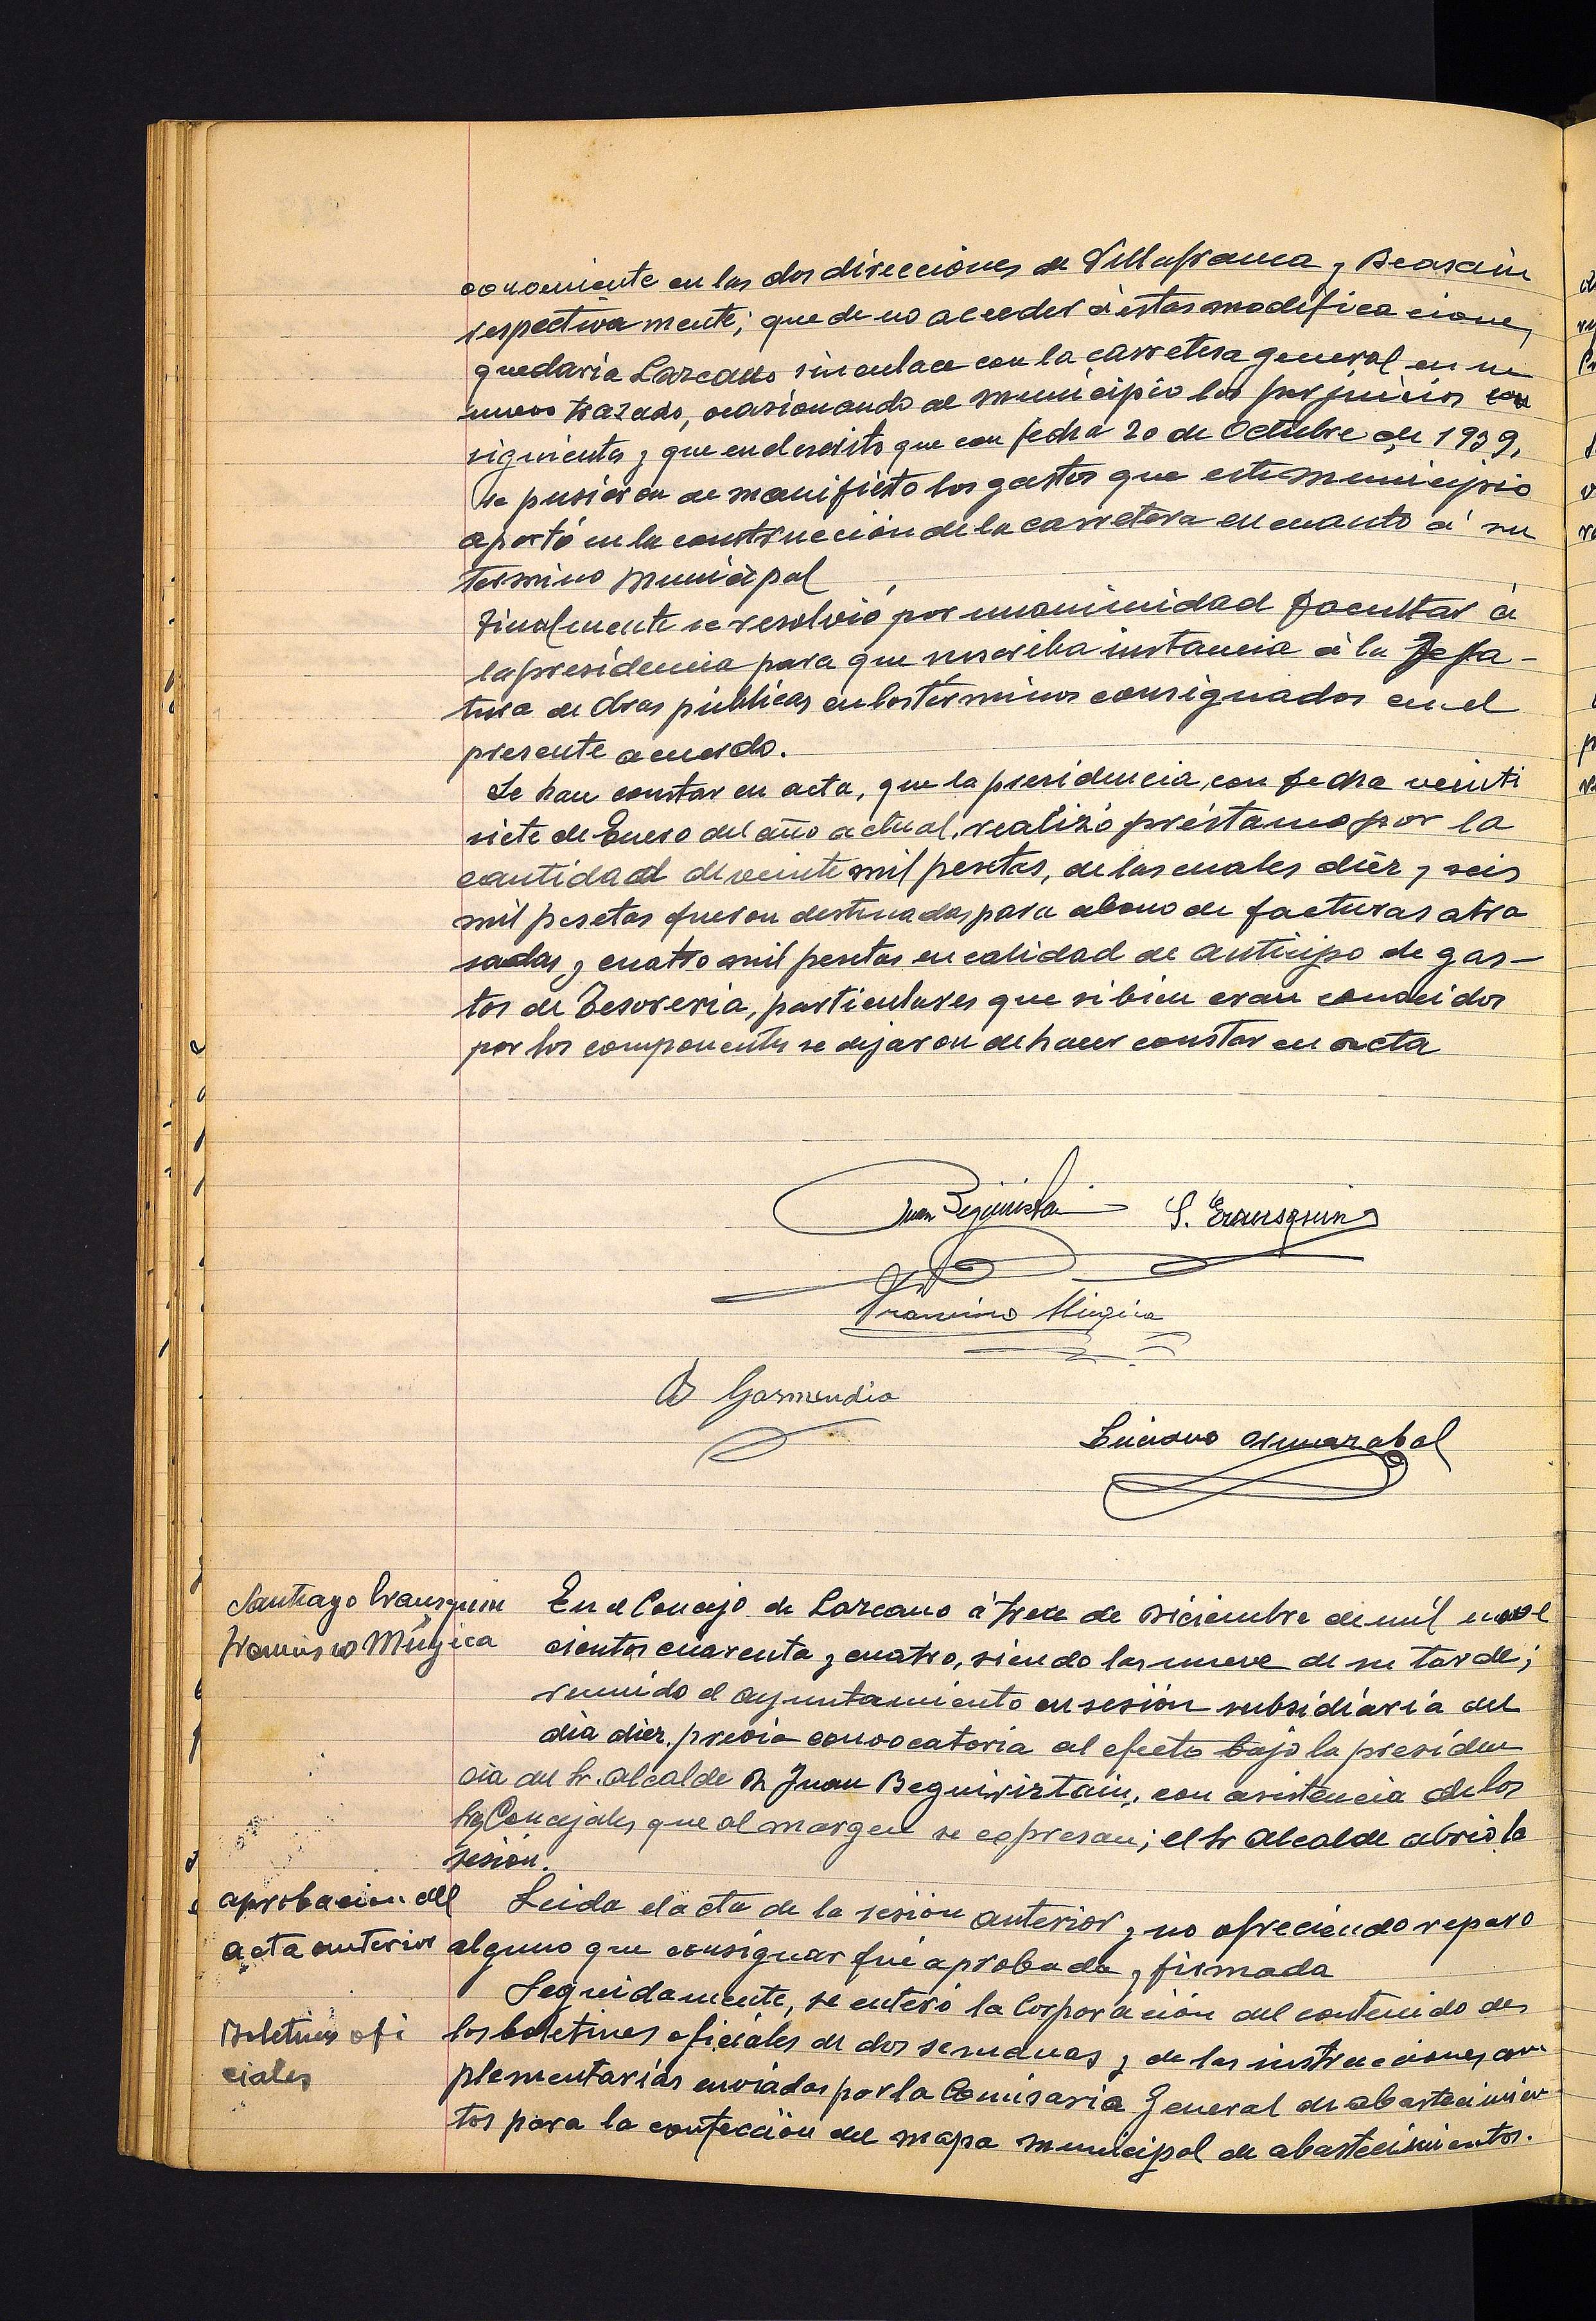 conveniente en las dos direcciones de Villafranca y Beasain
respectivamente; que de no acceder á estas modificaciones,
quedaria Lazcano sin enlace con la carretera general en su
nuevo trazado, ocasionando al municipio los perjuicios con
siguientes y que en el escrito que con fecha 20 de Octubre de 1939,
se pusieron de manifiesto los gastos que este municipio
aportó en la construcción de la carretera en cuanto á su
termino municipal
Finalmente se resolvió por unanimidad facultar á
la presidencia para que suscriba instancia á la Jefa-
tura de Obras públicas en los términos consignados en el
presente acuerdo.
Se hau constar en acta, que la presidencia, con fecha veinti
siete de Enero del año actual, realizó préstamo por la
cantidad de veinte mil pesetas, de las cuales diez y seis
mil pesetas fueron destinadas para abono de facturas atra
sadas y cuatro mil pesetas en calidad de anticipo de gas-
tos de Tesoreria, particulares que si bien eran conocidos
por los componentes se dejaron de hacer constar en acta
Juan Beguiristain S. Irausquin
Francisco Múgica
Garmendia
Luciano Armazabal
Santiago Irausquin
Francisco Múgica
En el Concejo de Lazcano á trece de Diciembre de mil nove
cientos cuarenta y cuatro, siendo las nueve de su tarde;
reunido el ayuntamiento en sesión subsidiaria del
dia diez, previa convocatoria al efecto bajo la presiden
cia del Sr. Alcalde D. Juan Beguiristain, con asistencia de los
Srs Concejales que al margen se expresan; el Sr Alcalde abrió la
sesión.
aprobacion del
acta anterior
Leida el acta de la sesión anterior y no ofreciendo reparo
alguno que consignar fué aprobada y firmada
Boletines ofi
ciales
Seguidamente, se enteró la Corporación del contenido de
los boletines oficiales de dos semanas y de las instrucciones com
plementarias enviadas por la Comisaria General de abastecimien
tos para la confección del mapa municipal de abastecimientos.